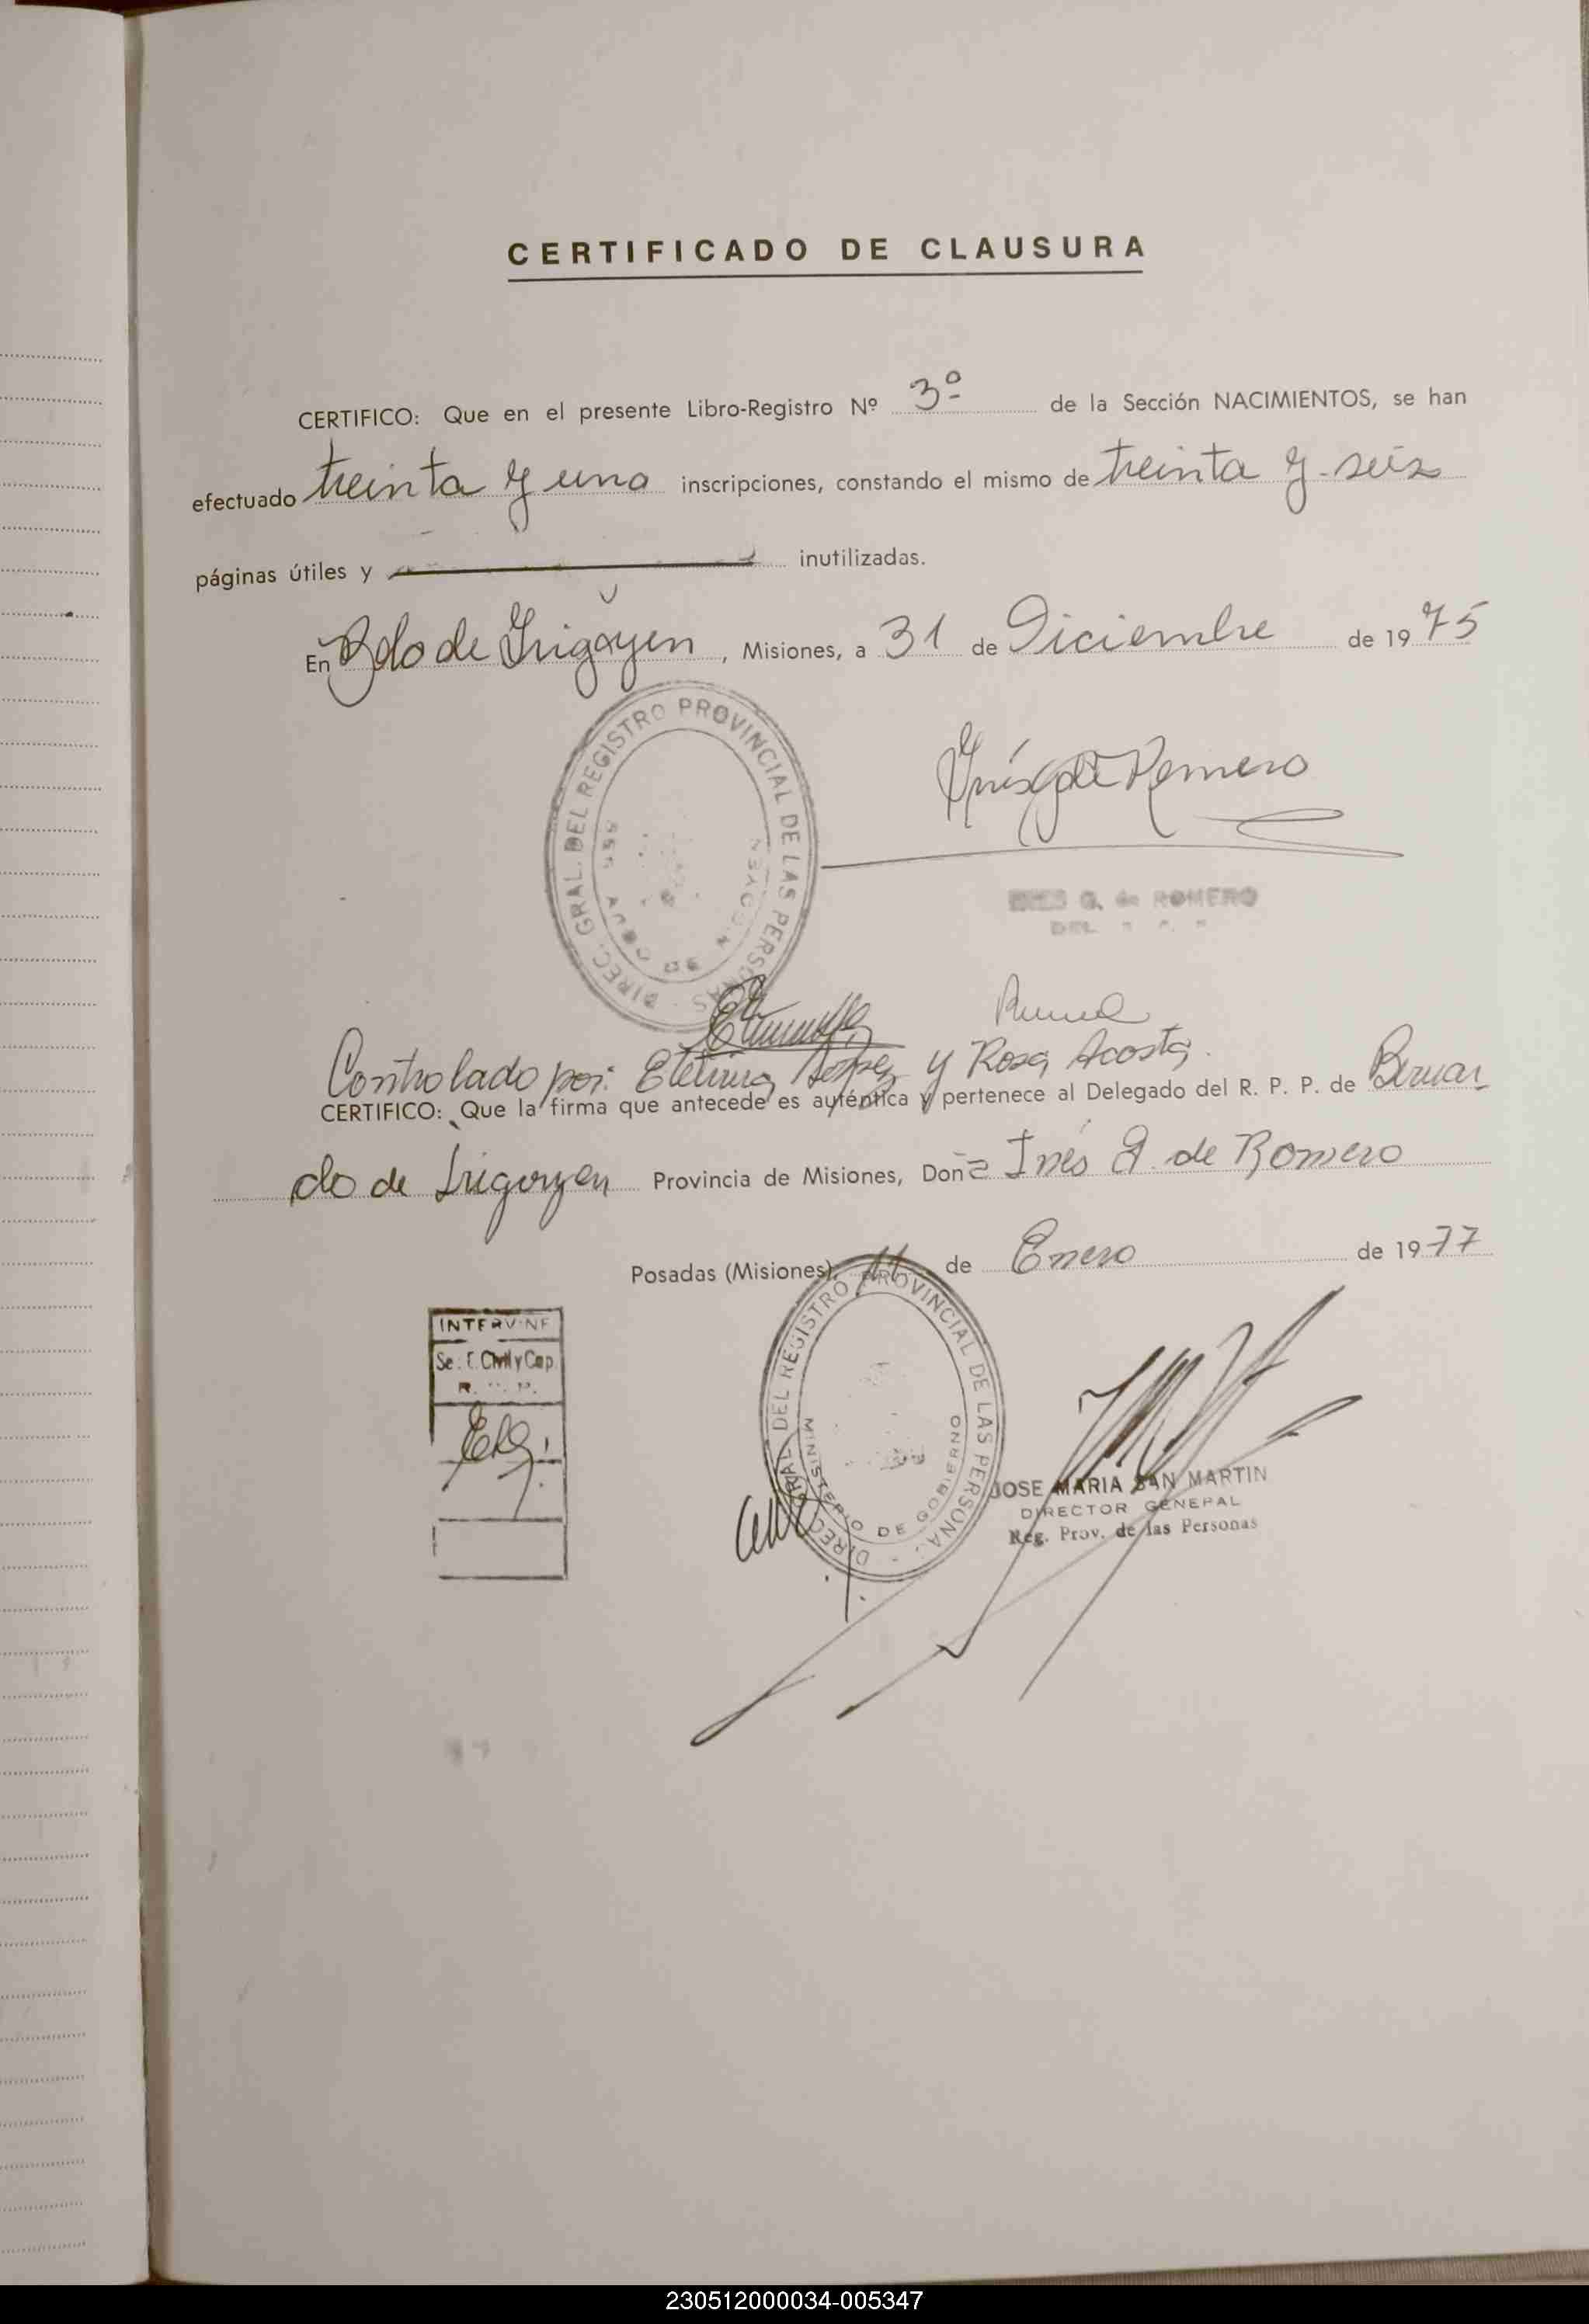 CERTIFICADO DE CLAUSURA
CERTIFICO: Que en el presente Libro-Registro Nº 3º de la Sección NACIMIENTOS, se han
efectuado treinta y uno inscripciones, constando el mismo de treinta y seis
páginas útiles y inutilizadas.
En Bdo de Irigoyen, Misiones, a 31 de Diciembre de 1975
DIREC. GRAL. DEL REGISTRO PROVINCIAL DE LAS PERSONAS
Inés G de Romero
G. de ROMERO
Controlado por: López y Rosa Acosta.
CERTIFICO: Que la firma que antecede es auténtica y pertenece al Delegado del R. P. P. de Bernar
do de Irigoyen Provincia de Misiones, Doña Inés G. de Romero
Posadas (Misiones), 11 de Enero de 1977
INTERVINE
Civil y Cap.
DIREC. GRAL. DEL REGISTRO PROVINCIAL DE LAS PERSONA
MINISTERIO DE GOBIERNO
JOSE MARIA SAN MARTIN
DIRECTOR GENERAL
Reg. Prov. de las Personas
230512000034-005347